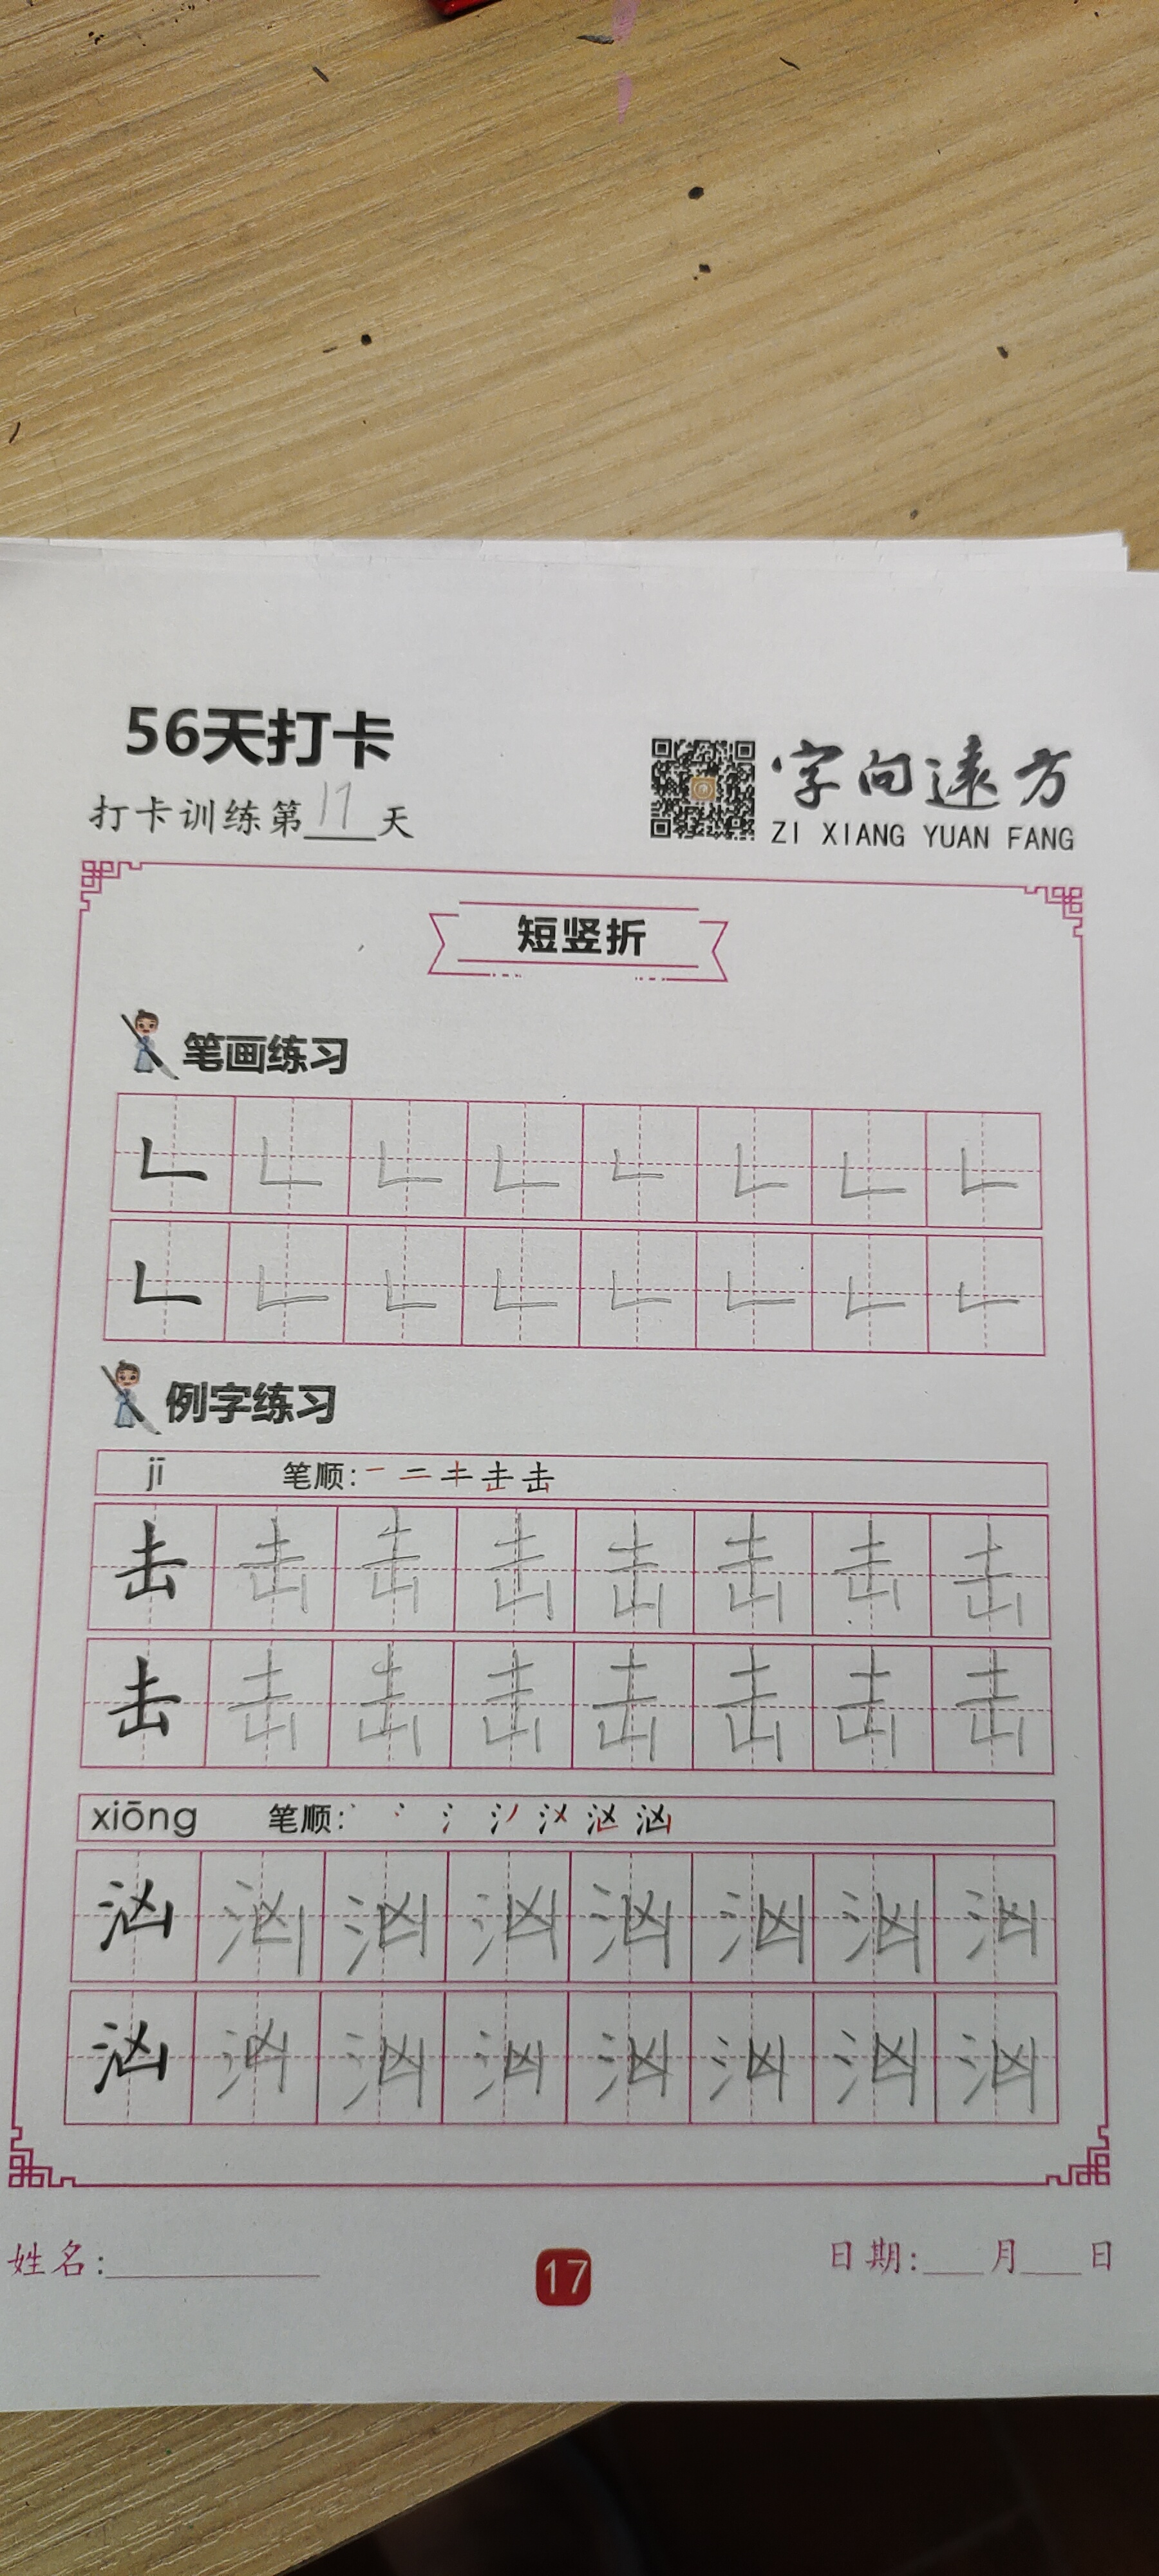 56天打卡
打卡训练第17天
字向遠方
ZI XIANG YUAN FANG
短竖折
笔画练习
𠃊 𠃊 𠃊 𠃊 𠃊 𠃊 𠃊 𠃊
𠃊 𠃊 𠃊 𠃊 𠃊 𠃊 𠃊 𠃊
例字练习
jī 笔顺:
击 击 击 击 击 击 击 击
击 击 击 击 击 击 击 击
xiōng 笔顺:
汹 汹 汹 汹 汹 汹 汹 汹
汹 汹 汹 汹 汹 汹 汹 汹
姓名:
17
日期: 月 日